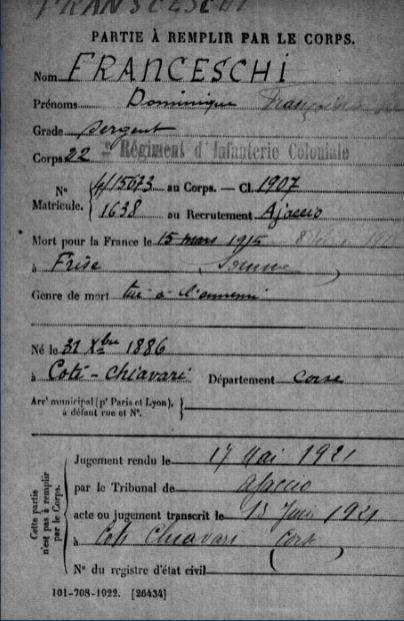 FRANCESCHI
PARTIE À REMPLIR PAR LE CORPS.
Nom FRANCESCHI
Prénoms Dominique
Grade Sergent
Corps 22 e Régiment d'Infanterie Coloniale
N° 4/15673 au Corps. — Cl. 1907
Matricule. 1638 au Recrutement Ajaccio
Mort pour la France le 15 mars 1915
à Frise (Somme)
Genre de mort tué à l'ennemi
Né le 31 Xbre 1886
à Coti-Chiavari Département Corse
Arrt municipal (pr Paris et Lyon),
à défaut rue et N°.
Cette partie
n'est pas à remplir
par le Corps.
Jugement rendu le 17 Mai 1921
par le Tribunal de Ajaccio
acte ou jugement transcrit le 15 Juin 1921
à Coti Chiavari Corse
N° du registre d'état civil
101-708-1922. [26434]